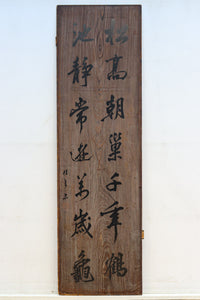 松高朝巢千年鶴
池靜常遊萬歲龜